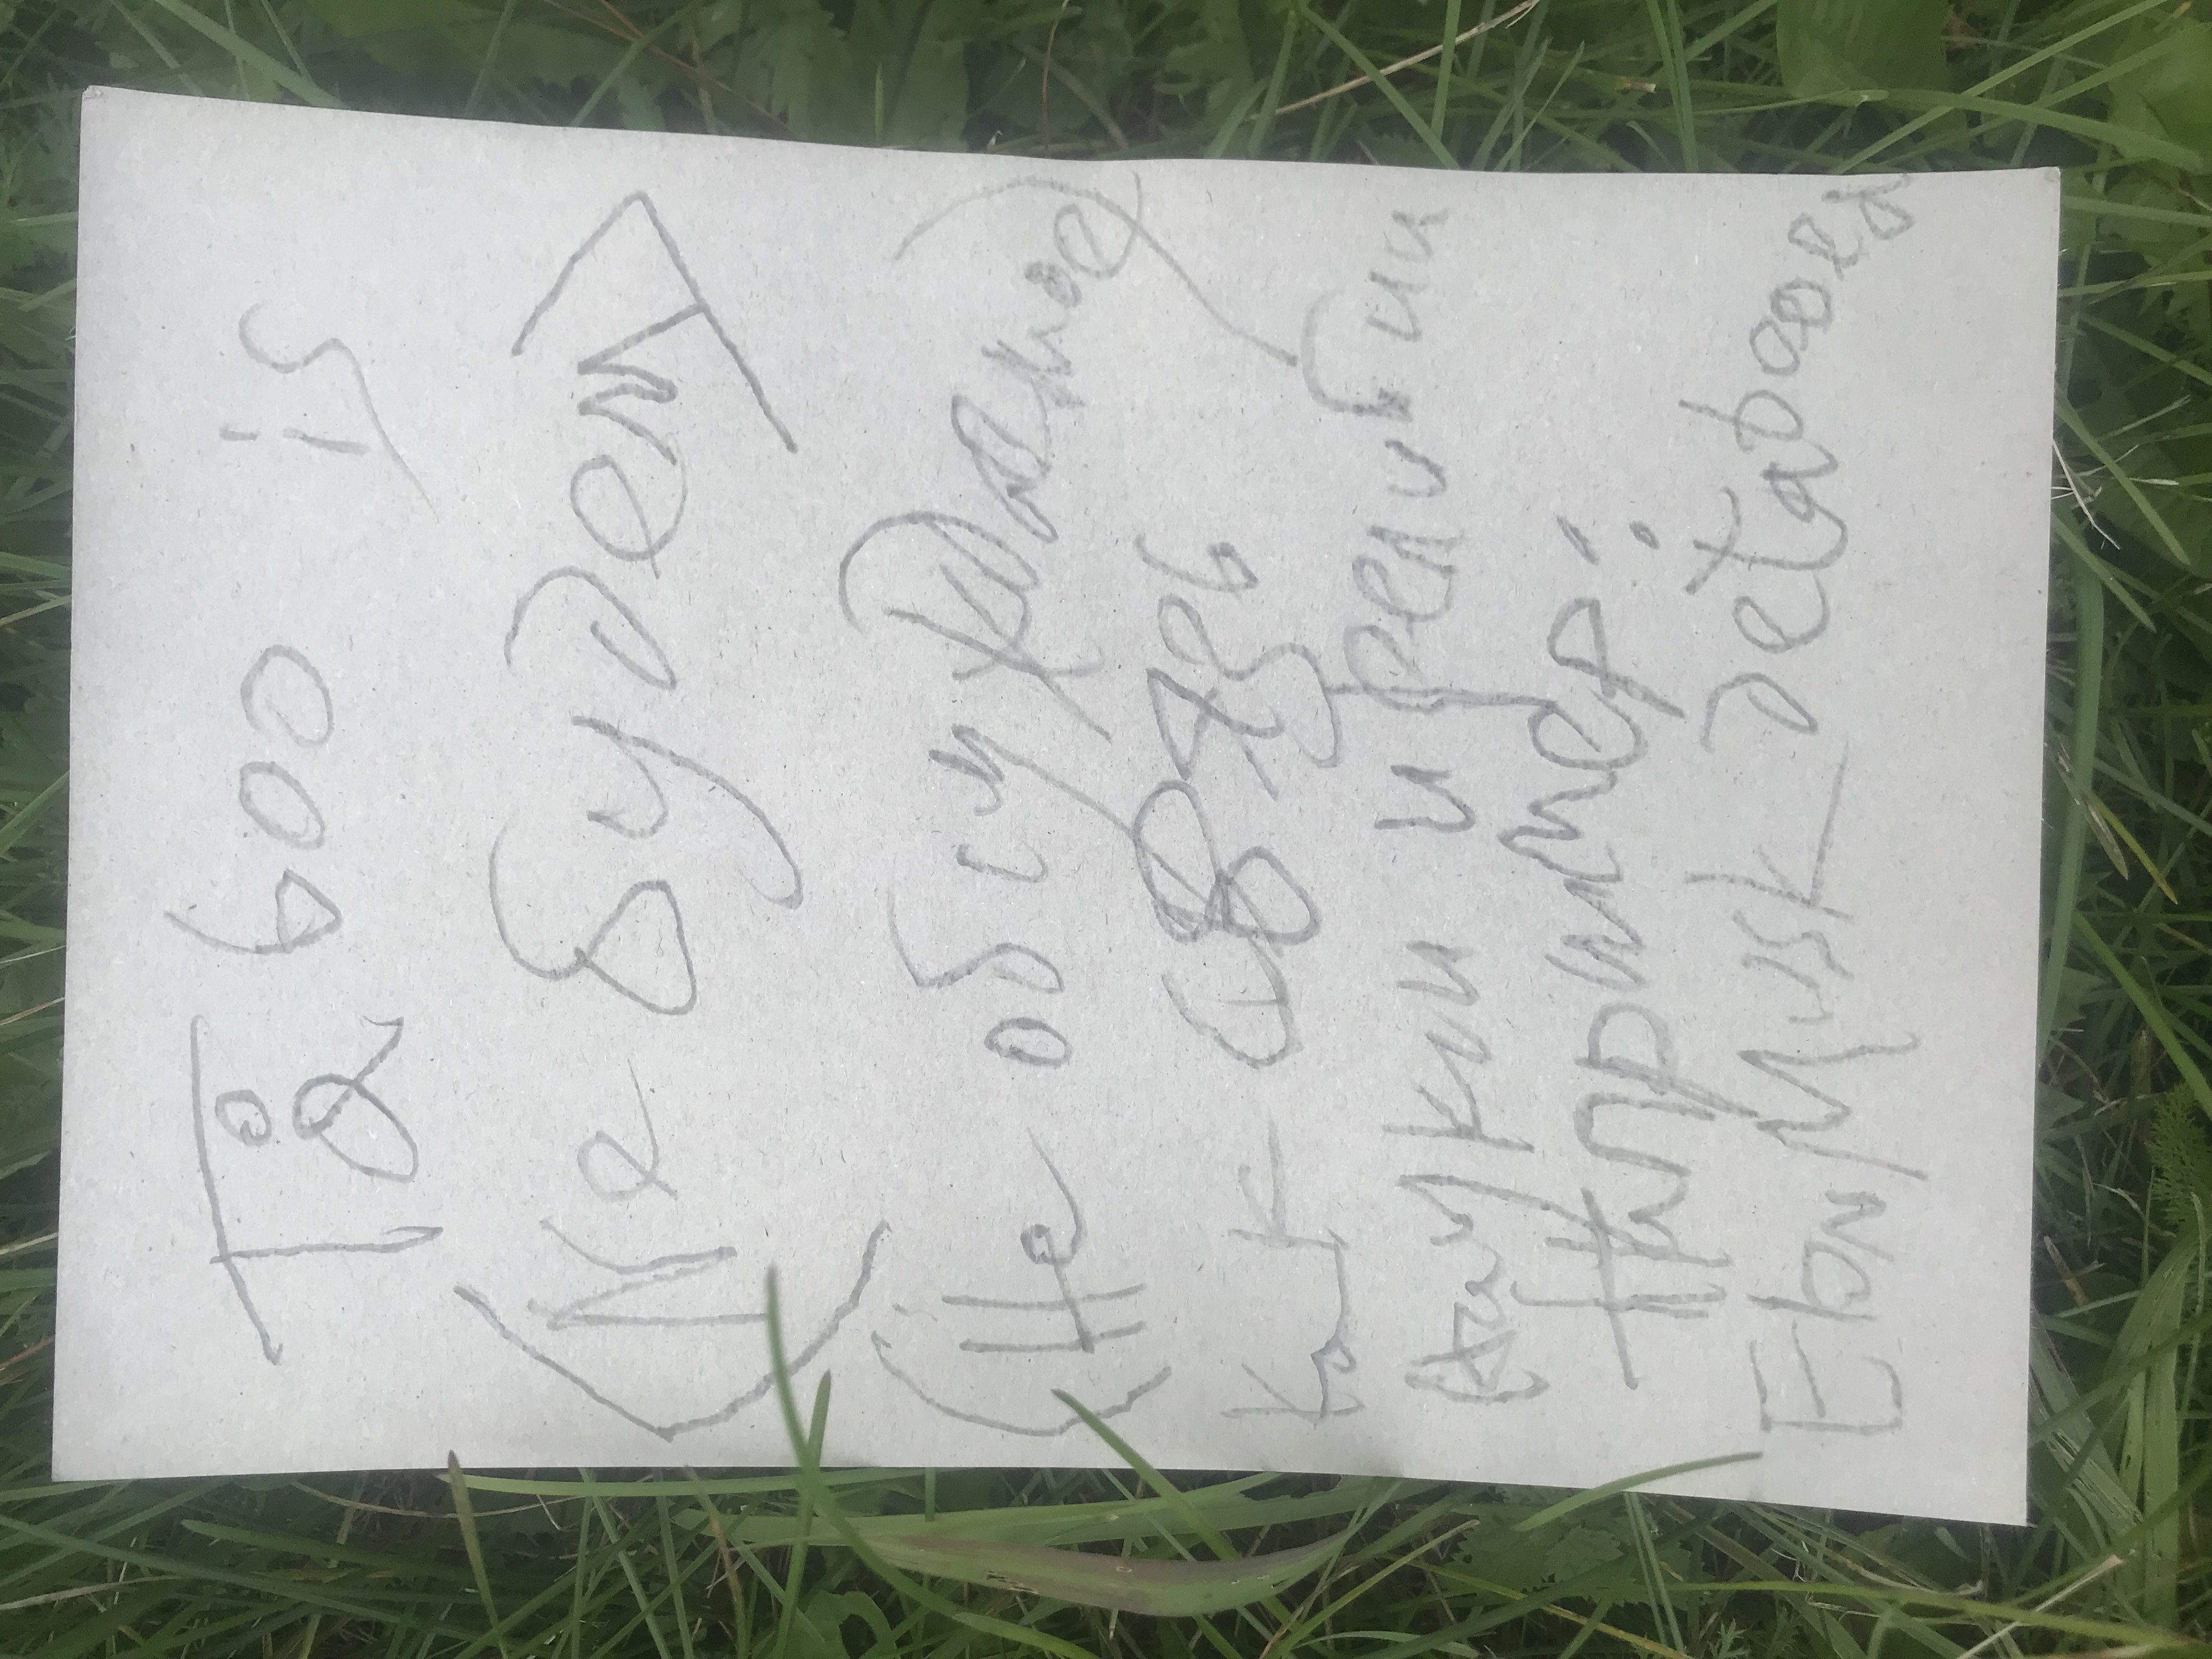 Tåboo is
<Ne будем>
(Не обсуждаемое)
как связь
науки и религии
Например:
Elon Musk